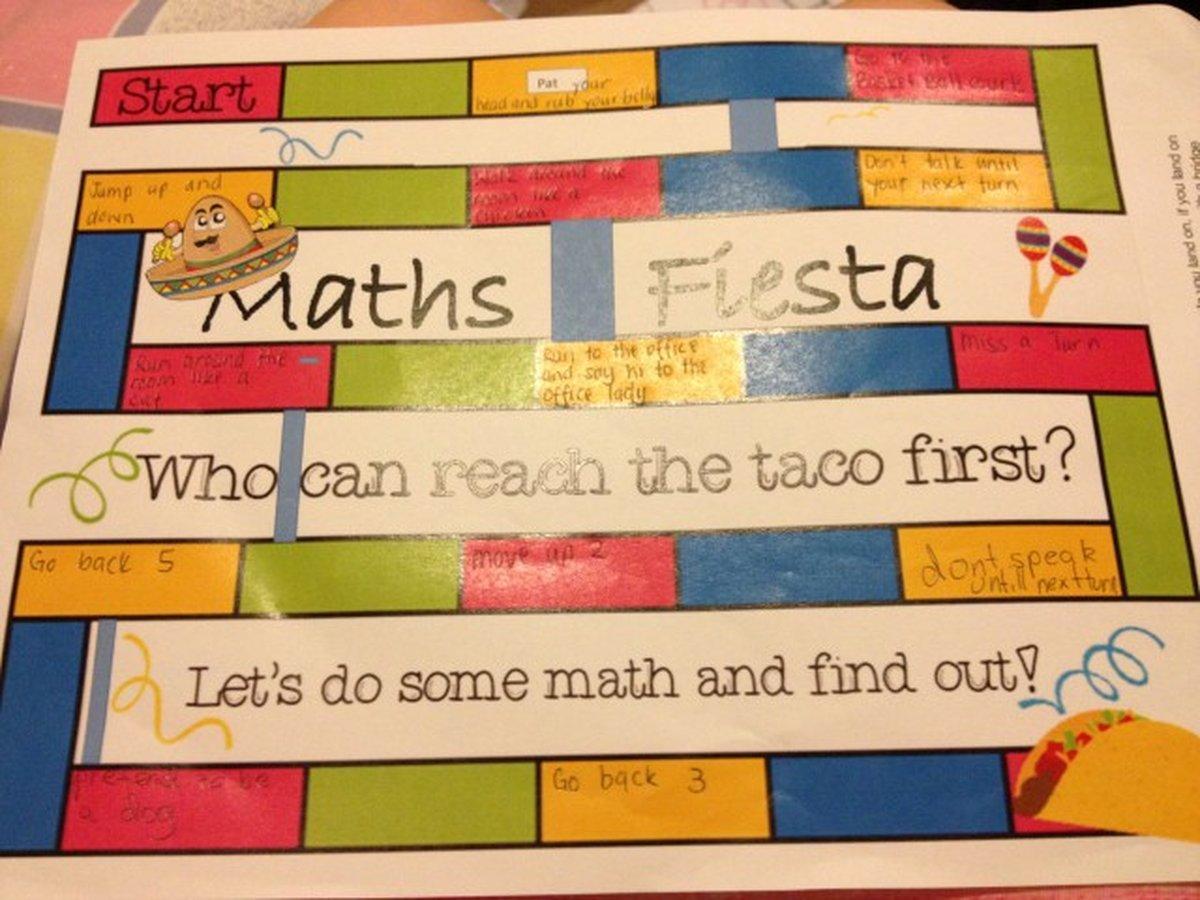 Start
Pat your
head and rub your belly
Go to the
Basket Ball court
Jump up and
down
Walk around the
room like a
chicken
Don't talk until
your next turn
Maths Fiesta
Run around the
room like a
cat
Run to the office
and say hi to the
office lady
miss a Turn
Who can reach the taco first?
Go back 5
move up 2
dont speak
until next turn
Let's do some math and find out!
pretend to be
a dog
Go back 3
you land on. if you land on
bridge